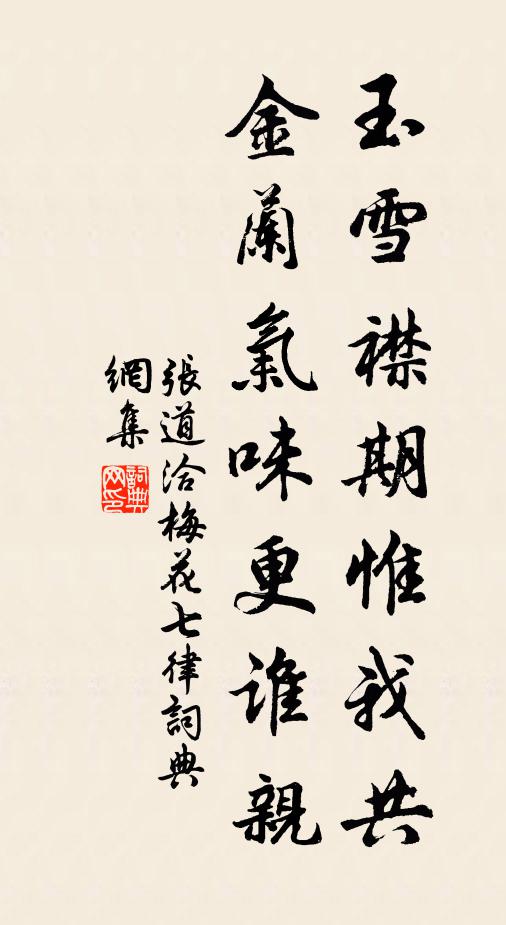 玉雪襟期惟我共
金蘭氣味更誰親
張道洽梅花七律詞典
網集
詞典網印